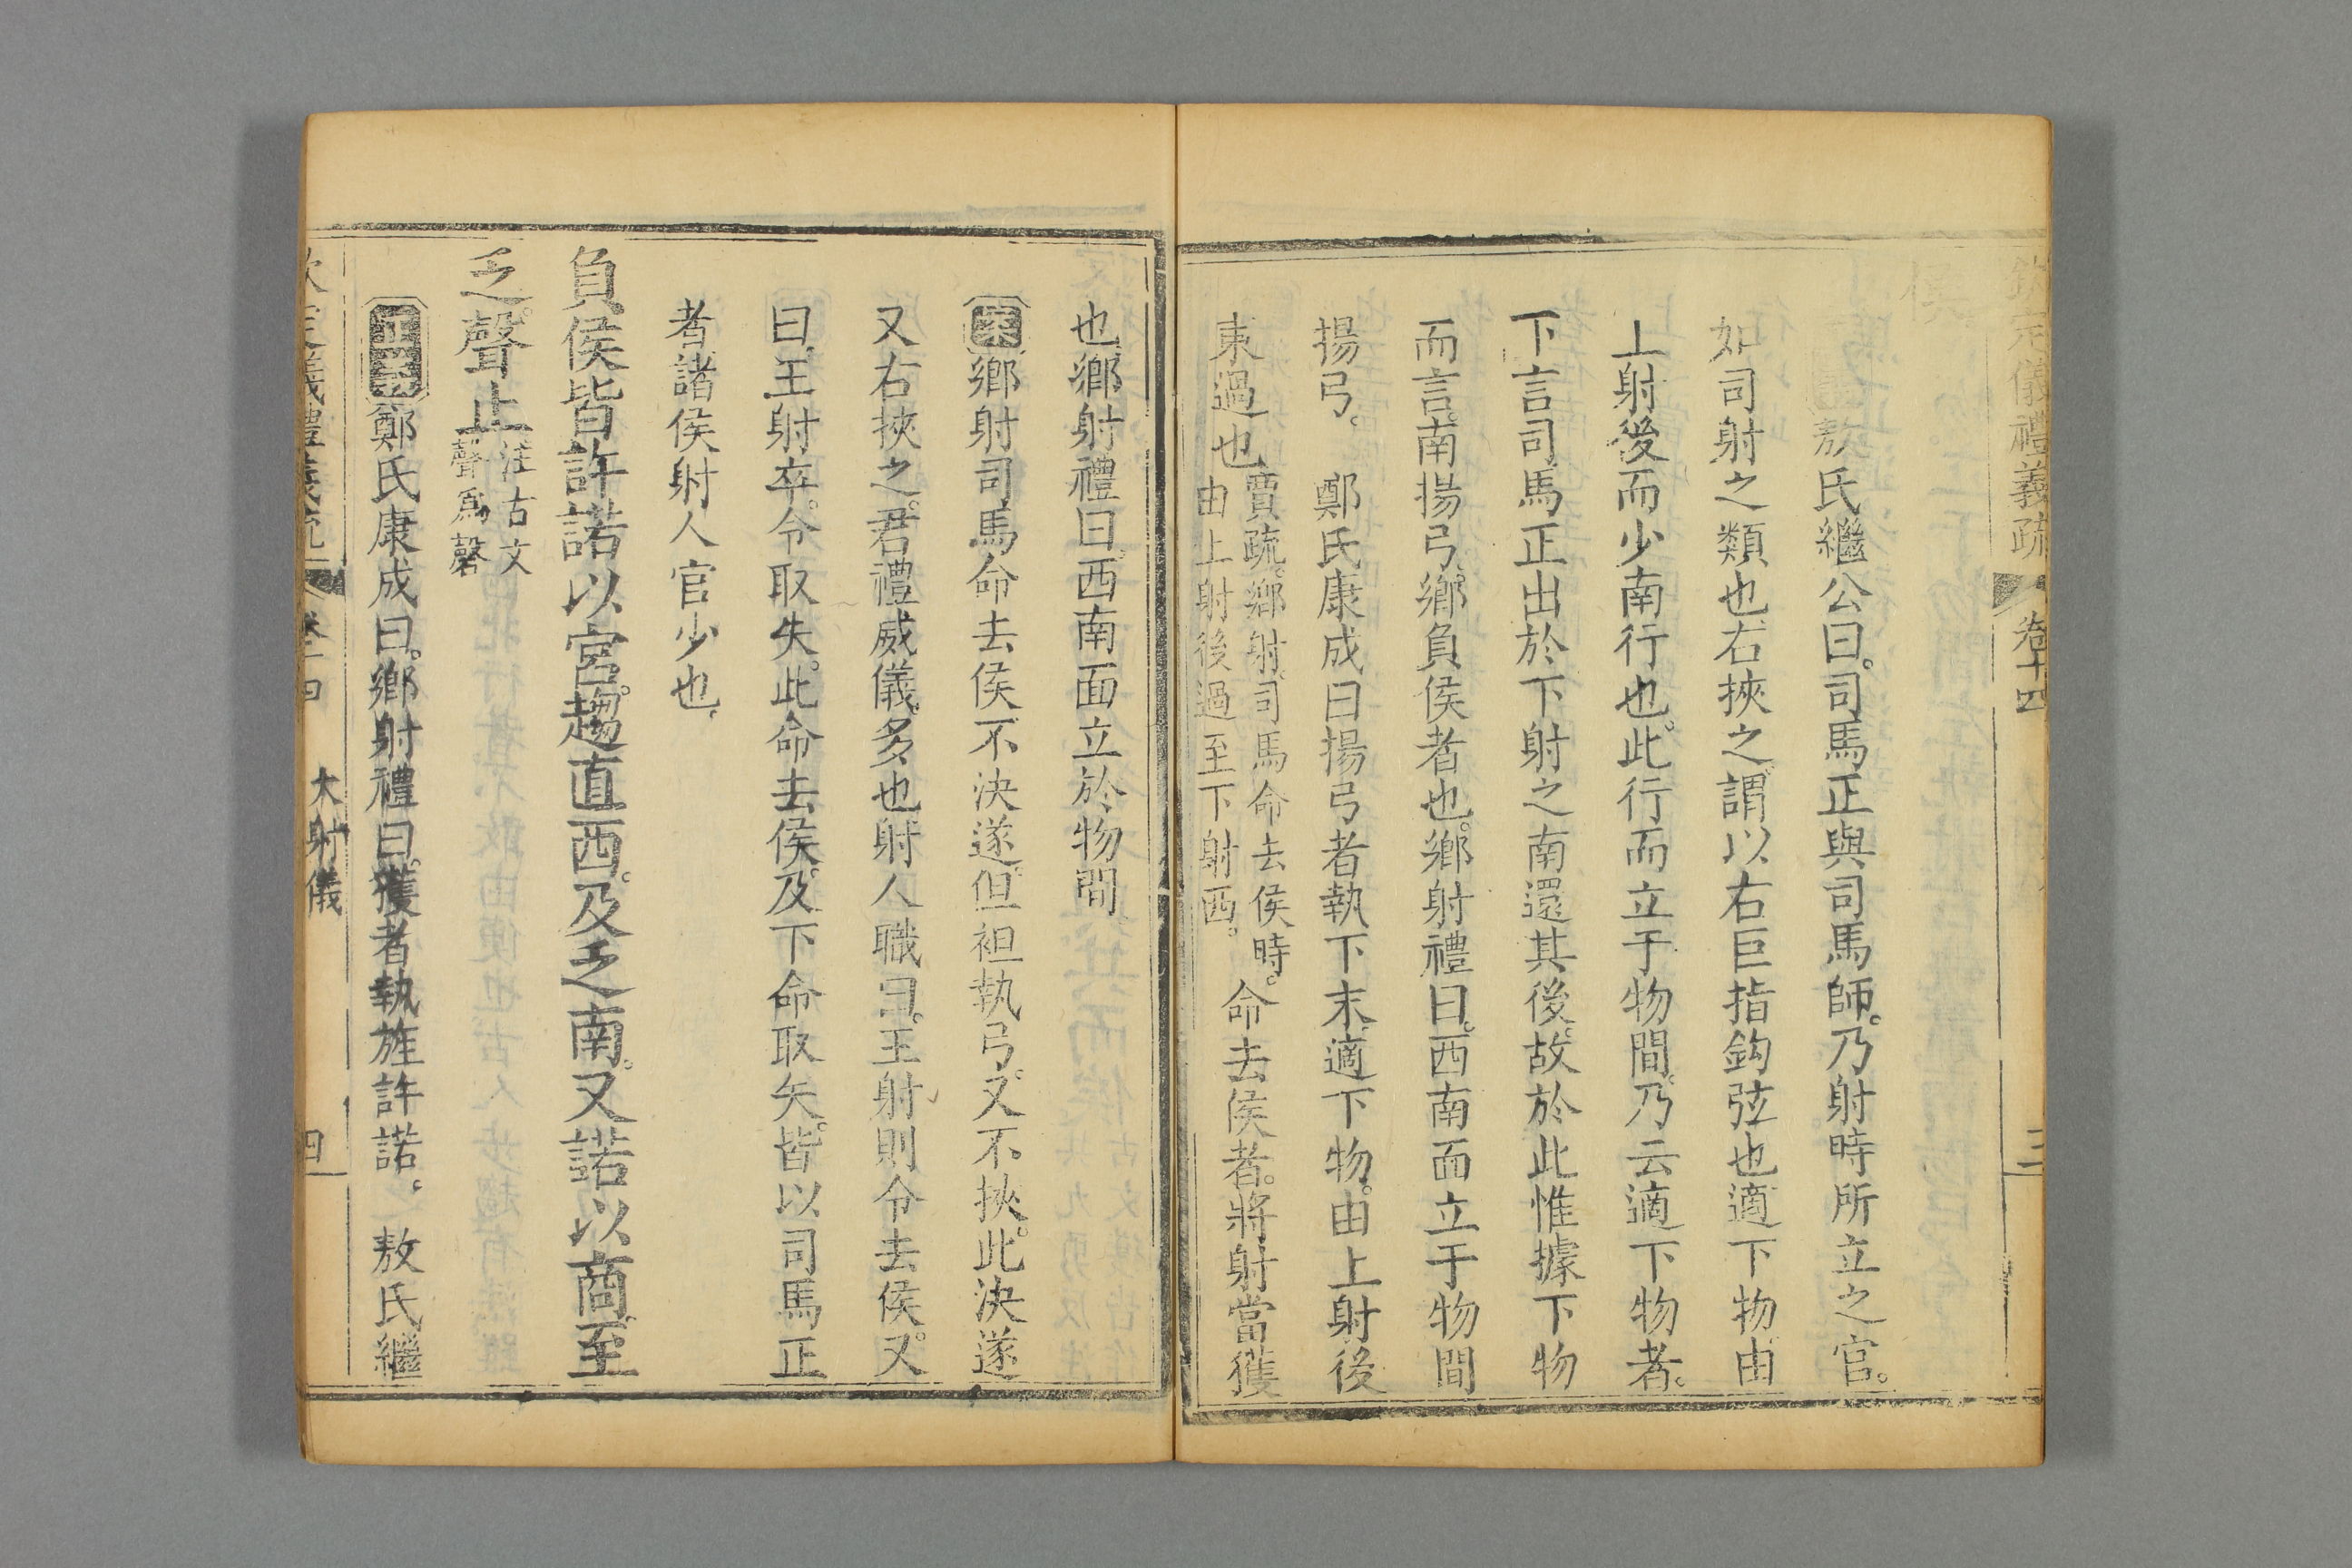 欽定儀禮義疏 卷十四 三
侯
敖氏繼公曰。司馬正與司馬師。乃射時所立之官。
如司射之類也。右挾之謂以右巨指鈎弦也適下物由
上射後而少南行也。此行而立于物間。乃云適下物者。
下言司馬正出於下射之南還其後。故於此惟據下物
而言。南揚弓。鄉負侯者也。鄉射禮曰。西南面立于物間
揚弓。 鄭氏康成曰揚弓者執下末。適下物。由上射後
東過也
賈疏。鄉射。司馬命去侯時。
由上射後過至下射西。
命去侯者。將射當獲
也。鄉射禮曰。西南面立於物間
案鄉射司馬命去侯不決遂。但袒執弓。又不挾。此決遂
又右挾之。君禮威儀。多也射人職曰。王射則令去侯。又
曰。王射卒。令取失。此命去侯。及下命取矢。皆以司馬正
者諸侯射人官少也。
負侯皆許諾以宮。趨直西。及乏南。又諾以商。至
乏。聲止
注古文
聲爲磬
正義鄭氏康成曰。鄉射禮曰。獲者執旌許諾。 敖氏繼
欽定儀禮義疏 卷十四 大射儀 四